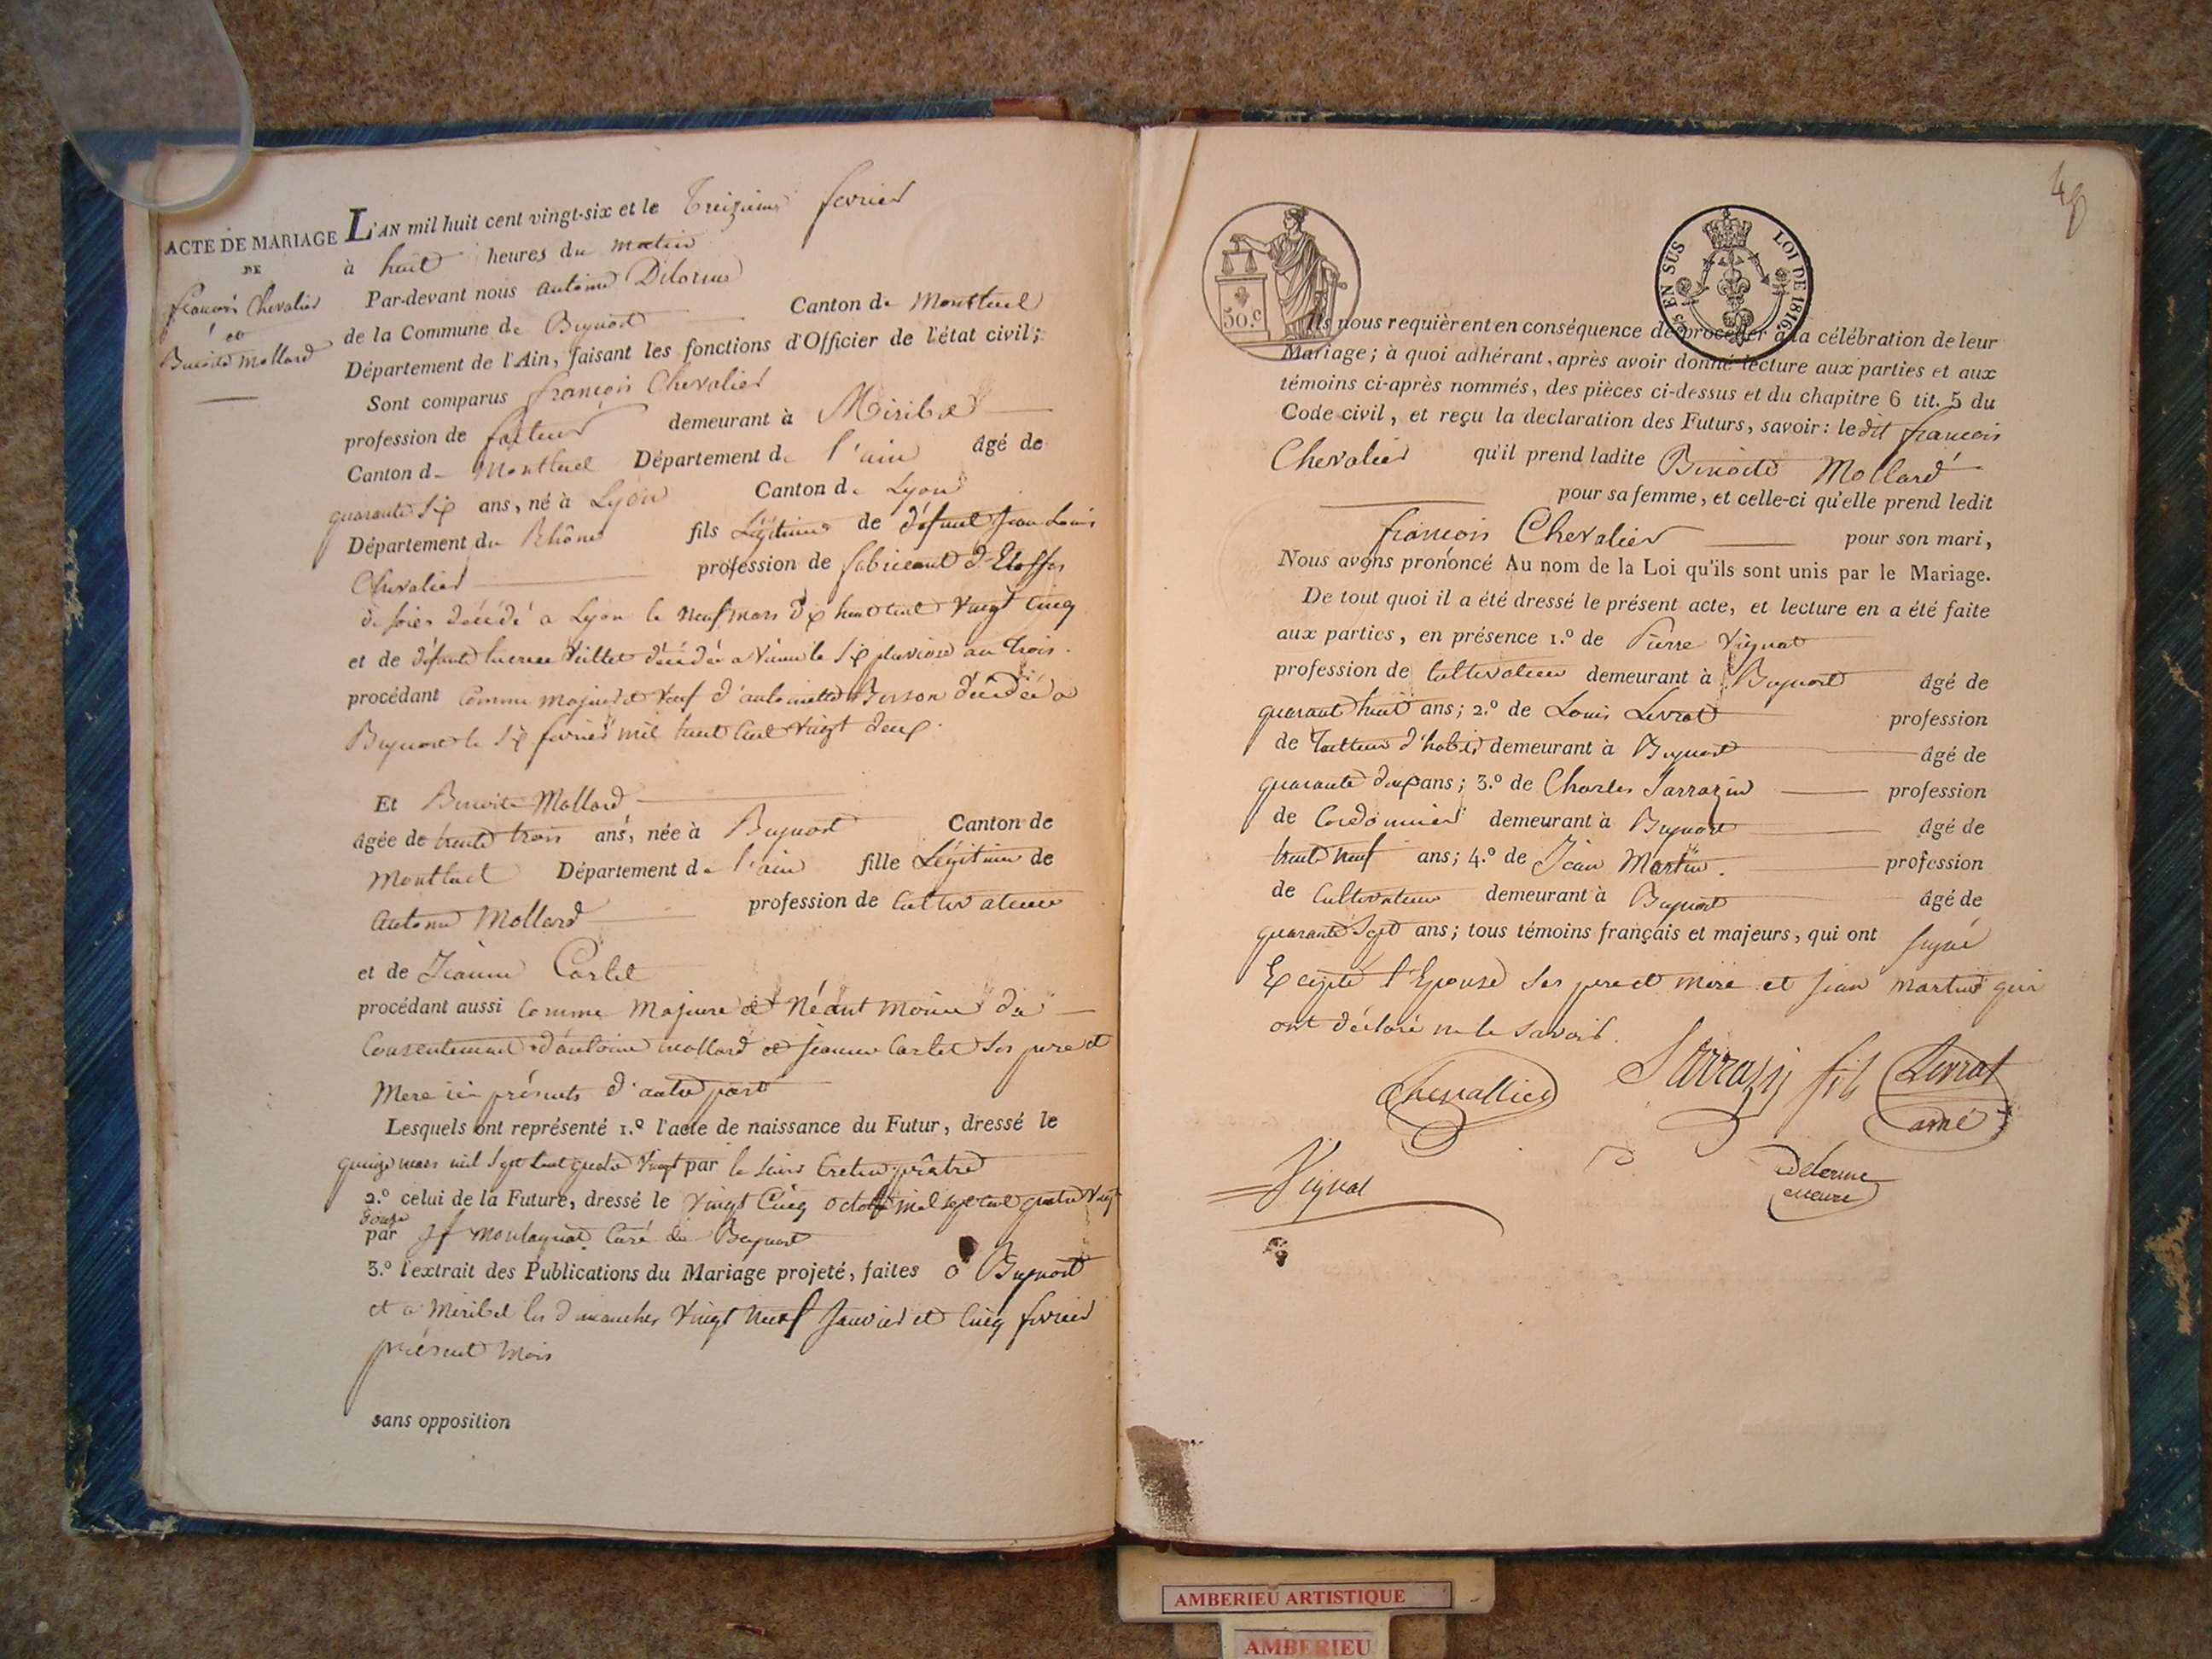 ACTE DE MARIAGE
DE
françois Chevalier
et
Benoite Mollard
L'AN mil huit cent vingt-six et le Treizieme fevrier
à huit heures du matin
Par-devant nous antoine Delorme
de la Commune de Beynost Canton de Montluel
Département de l'Ain, faisant les fonctions d'Officier de l'état civil;
Sont comparus françois Chevalier
profession de facteur demeurant à Miribel
Canton de Montluel Département de l'ain âgé de
quarante six ans, né à Lyon Canton de Lyon
Département du Rhône fils Légitime de défunt Jean Louis
Chevalier profession de fabricant d'Etoffes
de soies décédé a Lyon le neuf mars dix huit cent vingt cinq
et de défunte lucrece décédée a le six pluviose an trois.
procédant comme majeur et veuf d'antoinette décédée a
Beynost le six fevrier mil huit cent vingt deux.
Et Benoite Mollard
âgée de trente trois ans, née à Beynost Canton de
Montluel Département de l'ain fille Légitime de
antoine Mollard profession de cultivateur
et de Jeanne Carlet
procédant aussi comme majeure et du
consentement d'antoine mollard et jeanne Carlet ses pere et
mere ici présents d'autre part
Lesquels ont représenté 1.º l'acte de naissance du Futur, dressé le
quinze mars mil sept cent quatre vingt par le sieur prêtre
2.º celui de la Future, dressé le vingt cinq octobre mil sept cent quatre vingt
douze
par curé de Beynost
3.º l'extrait des Publications du Mariage projeté, faites à Beynost
et a Miribel les dimanches vingt neuf janvier et cinq fevrier
présent mois
sans opposition
48
50.c
EN SUS LOI DE 1816
Ils nous requièrent en conséquence de procéder à la célébration de leur
Mariage; à quoi adhérant, après avoir donné lecture aux parties et aux
témoins ci-après nommés, des pièces ci-dessus et du chapitre 6 tit. 5 du
Code civil, et reçu la declaration des Futurs, savoir: ledit françois
Chevalier qu'il prend ladite Benoite Mollard
pour sa femme, et celle-ci qu'elle prend ledit
françois Chevalier pour son mari,
Nous avons prononcé Au nom de la Loi qu'ils sont unis par le Mariage.
De tout quoi il a été dressé le présent acte, et lecture en a été faite
aux parties, en présence 1.º de Pierre Vignat
profession de Cultivateur demeurant à Beynost âgé de
quarant huit ans; 2.º de Louis Levrat profession
de Tailleur d'habis demeurant à Beynost âgé de
quarante deux ans; 3.º de Charles Sarrazin profession
de Cordonnier demeurant à Beynost âgé de
trente neuf ans; 4.º de Jean Martin. profession
de Cultivateur demeurant à Beynost âgé de
quarante sept ans; tous témoins français et majeurs, qui ont signé
Excepté l'Epouse ses pere et mere et jean martin qui
ont déclaré ne le savoir.
Chevallier Sarrazin fils Levrat
ainé
Vignat Delorme
AMBERIEU ARTISTIQUE
AMBERIEU